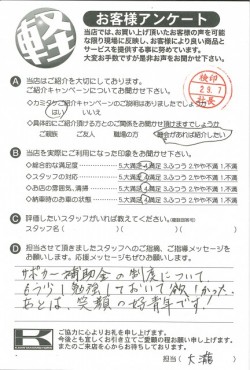 軽
お客様アンケート
当店では、お買い上げ頂いたお客様の声を可能
な限り現場に反映し、お客様により良い商品と
サービスを提供する事に努めています。
大変お手数ですが是非お声をお聞かせ下さい。
検印
29.9.7
Ⓐ 当店はご紹介を大切にしております。
ご紹介キャンペーンについてお聞かせ下さい。
・カミタケご紹介キャンペーンのご説明はありましたでしょうか？
はい いいえ
・具体的にご紹介頂ける方とのご関係をお聞かせ頂けますでしょうか
ご親族 ご友人 職場の方 機会があれば紹介したい
Ⓑ 当店を実際にご利用になった印象をお聞かせ下さい。
◇総合的な満足度 5大満足 4満足 3ふつう 2やや不満 1不満
◇スタッフの対応 5大満足 4満足 3ふつう 2やや不満 1不満
◇お店の雰囲気、清掃 5大満足 4満足 3ふつう 2やや不満 1不満
◇納車時のお車の状態 5大満足 4満足 3ふつう 2やや不満 1不満
Ⓒ 評価したいスタッフがいれば教えてください。(複数回答可)
スタッフ名( ) スタッフ名( )
Ⓓ 担当させて頂きましたスタッフへのご指摘、ご指導メッセージを
お願いします。応援メッセージもぜひお願いします。
サポカー補助金の制度について
もう少し勉強しておいて欲しかった。
あとは、笑顔の好青年です！
ご協力に心よりお礼を申し上げます。
今後とも宜しくお引き立てご愛顧の程お願い申し上げます。
またのご来店を心からお待ちしております。
担当( 大瀧 )